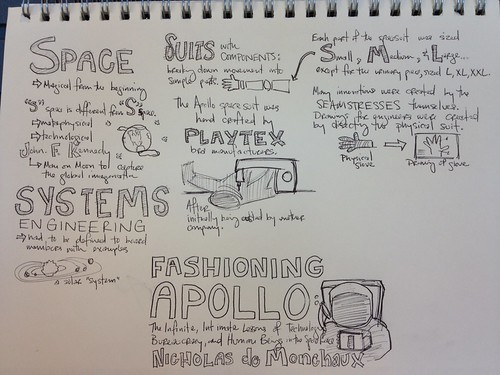 SPACE
→ Magical from the beginning
"s" space is different from "S" space.
→ metaphysical
→ technological
John F. Kennedy
→ Man on Moon to capture
the global imagination
SYSTEMS
ENGINEERING
→ had to be defined to board
members with examples
a solar "system"
SUITS with
COMPONENTS:
breaking down movement into
simple parts.
The Apollo space suit was
hand crafted by
PLAYTEX
bra manufacturers.
After
initially being ousted by mother
company.
Each part of the spacesuit was sized
Small, Medium, & Large...
except for the urinary piece, sized L, XL, XXL.
Many inventions were created by the
SEAMSTRESSES themselves.
Drawings for engineers were created
by dissecting the physical suit.
Physical
glove
Drawing of glove
FASHIONING
APOLLO:
The Infinite, Intimate Lessons of Technology,
Bureaucracy, and Human Beings in the Space Race
Nicholas de Monchaux